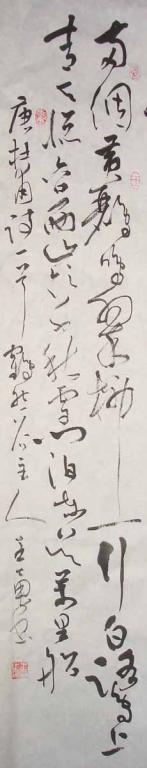 两個黄鹂鸣翠柳一行白鹭上
青天窗含西岭千秋雪门泊东吴万里船
唐杜甫诗一首 主人王书